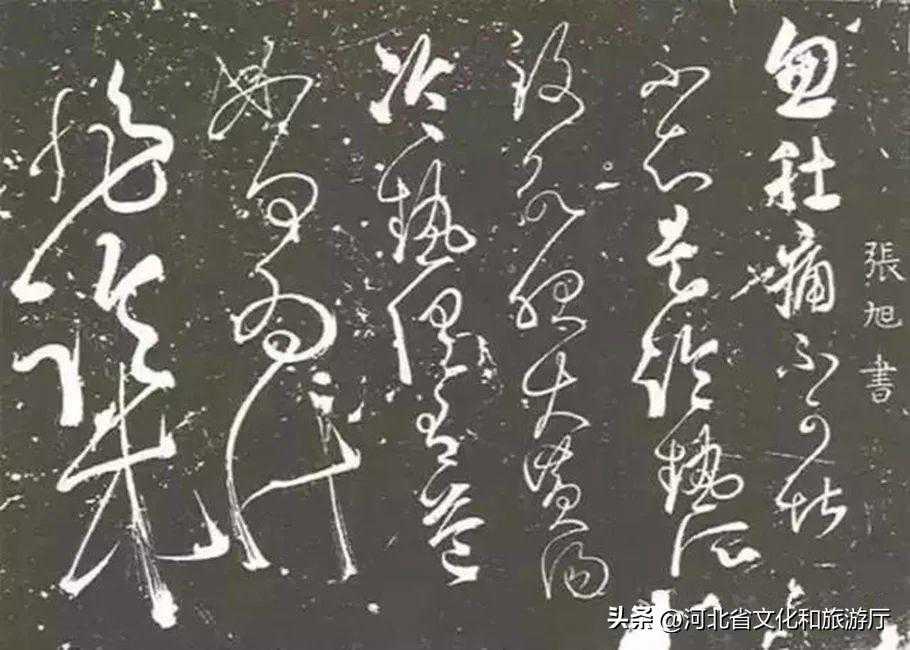 張旭書
忽肚痛不可堪
不知是冷熱所
致欲服大黃湯
冷熱俱有益
如何為計
頭条 @河北省文化和旅游厅